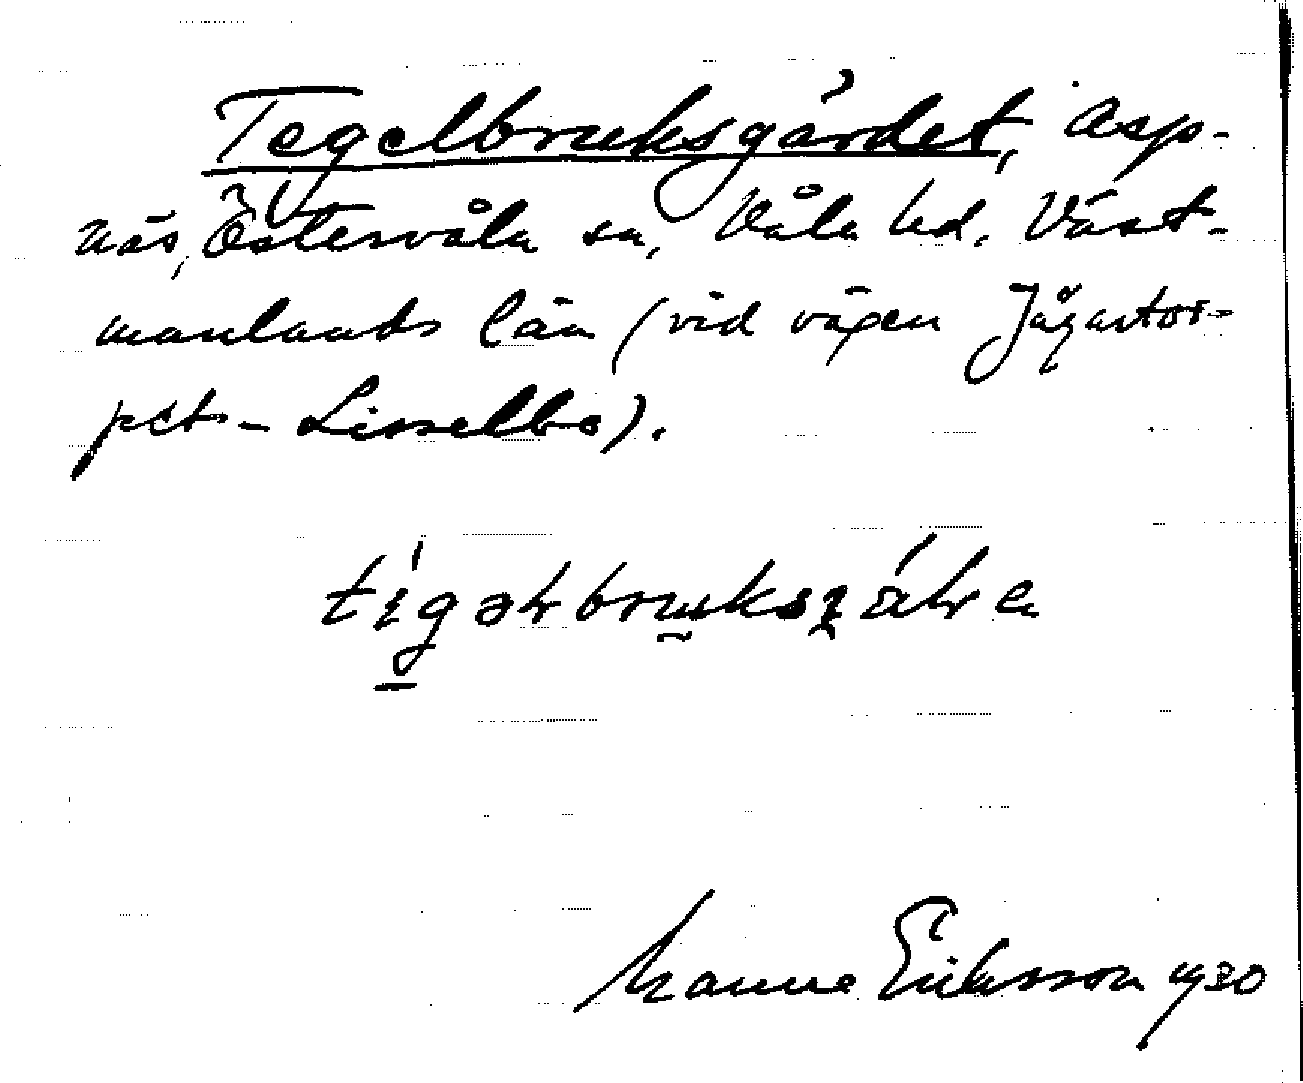 Tegelbruksgärdet, Asp-
näs, Östervåla sn, Våla hd. Väst-
manlands län (vid vägen Jägartor-
pets - Lisselbo).
Manne Eriksson 1930